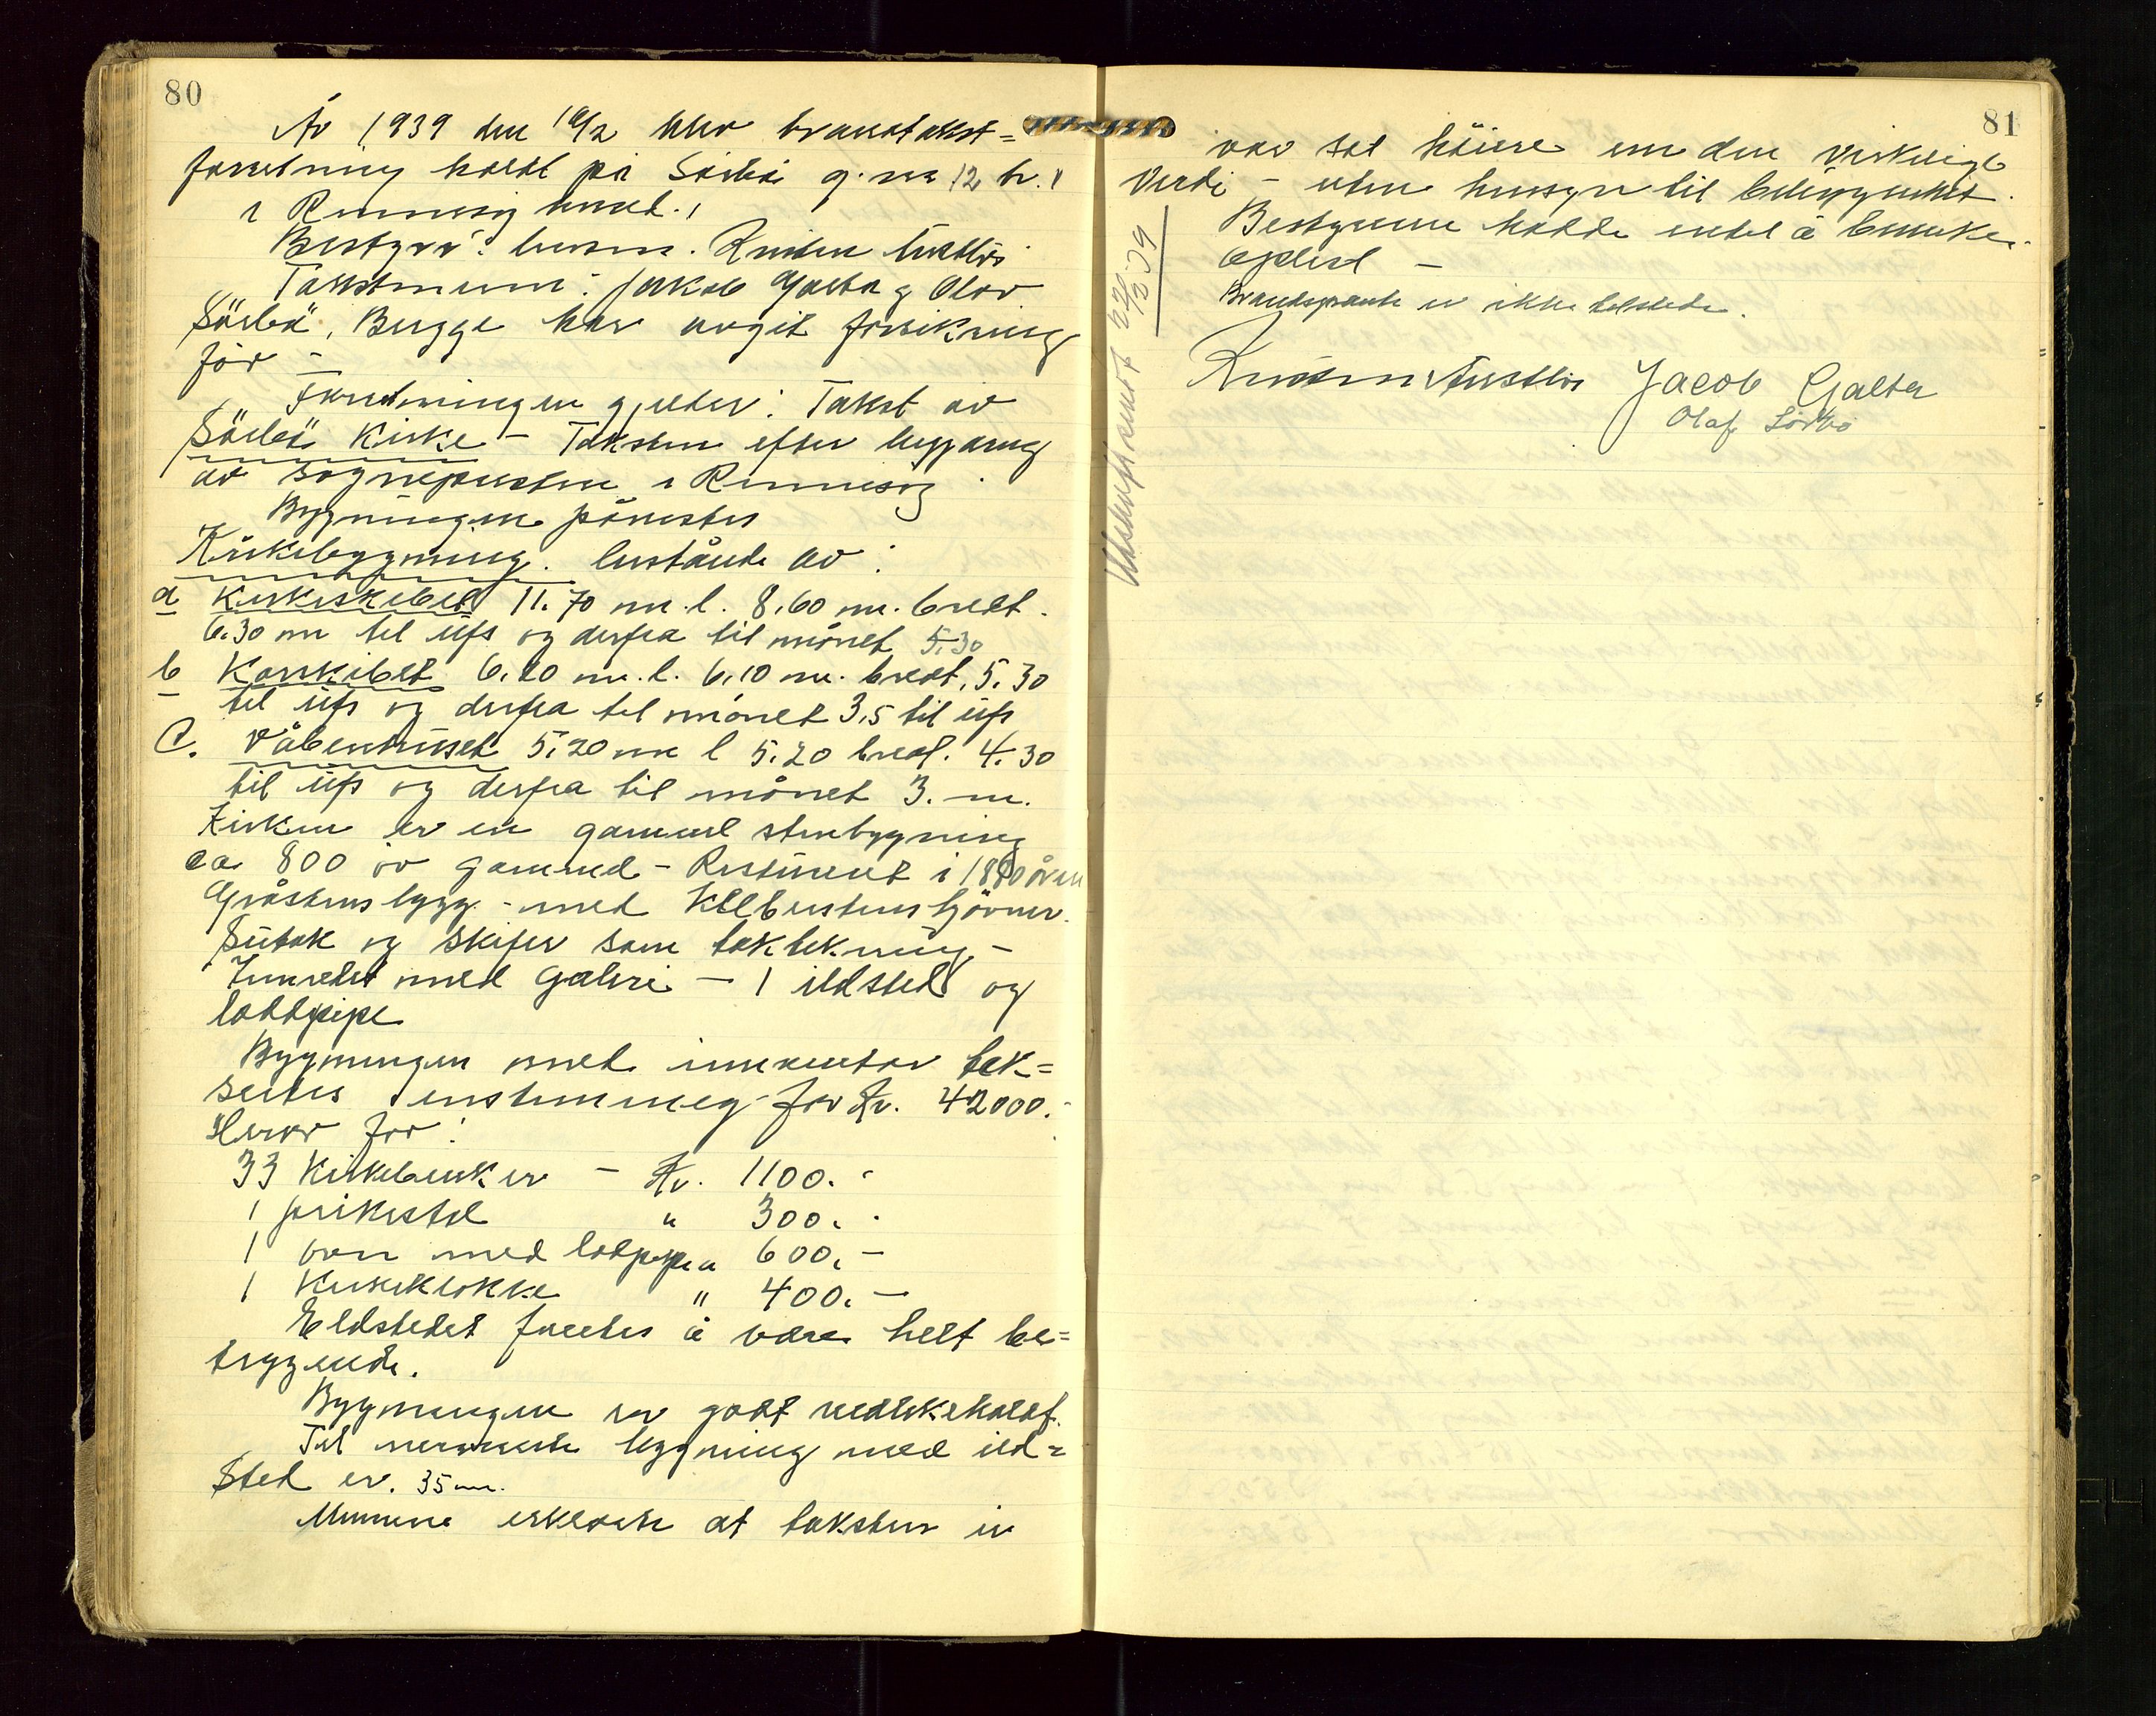 80
År 1939 den 10/2 blev brandtakst=
forretning holdt på Sörbö g. no 12 br. 1
i Rennesöy herred.
Bestyrer: lensm. Kristen Austbö
Takstmenn: Jakob Galta og Olav
Sörbö, Begge har avgit forsikring
för -
Forretningen gjelder: Takst av
Sörbö Kirke - Taksten efter begjæring
av sognepresten i Rennesöy
Bygningen påvistes
Kirkebygning. bestående av:
a Kirkeskibet 11.70 m. l. 8.60 m. bredt.
6.30 m til ufs og derfra til mönet 5.30
b Korskibet 6.20 m. l. 6.10 m. bredt, 5.30
til ufs og derfra til mönet 3.5 til ufs
C. Våbenhuset 5.20 m l 5.20 bredt. 4.30
til ufs og derfra til mönet 3. m.
Kirken er en gammel stenbygning
ca 800 år gammel - Restaurert i 1880 åren
Gråstensbygg - med Klebestenshjörner.
Sutak og skifer som taktekning -
Innredet med Galeri - 1 ildsted og
loddpipe
Bygningen med inventar tak=
sertes enstemmig for Kr. 42000.-
Herav for:
33 Kirkebenker - Kr. 1100.-
1 prekestol " 300.-
1 ovn med lodpipe " 600.-
1 Kirkeklokke " 400.-
Eldstedet fantes å være helt be=
tryggende.
Bygningen er godt vedlikeholdt.
Til nærmeste bygning med ild=
sted er. 35 m.
Mennene erklærte at taksten ei
81
var sat höiere enn den virkelige
Verdi - uten hensyn til beliggenhet.
Bestyreren hadde intet å bemerke.
Oplest -
Brandsjefen er ikke tilstede.
Kristen Austbö Jacob Galta
Olaf Sörbö
Utskrift sendt 22/3-39